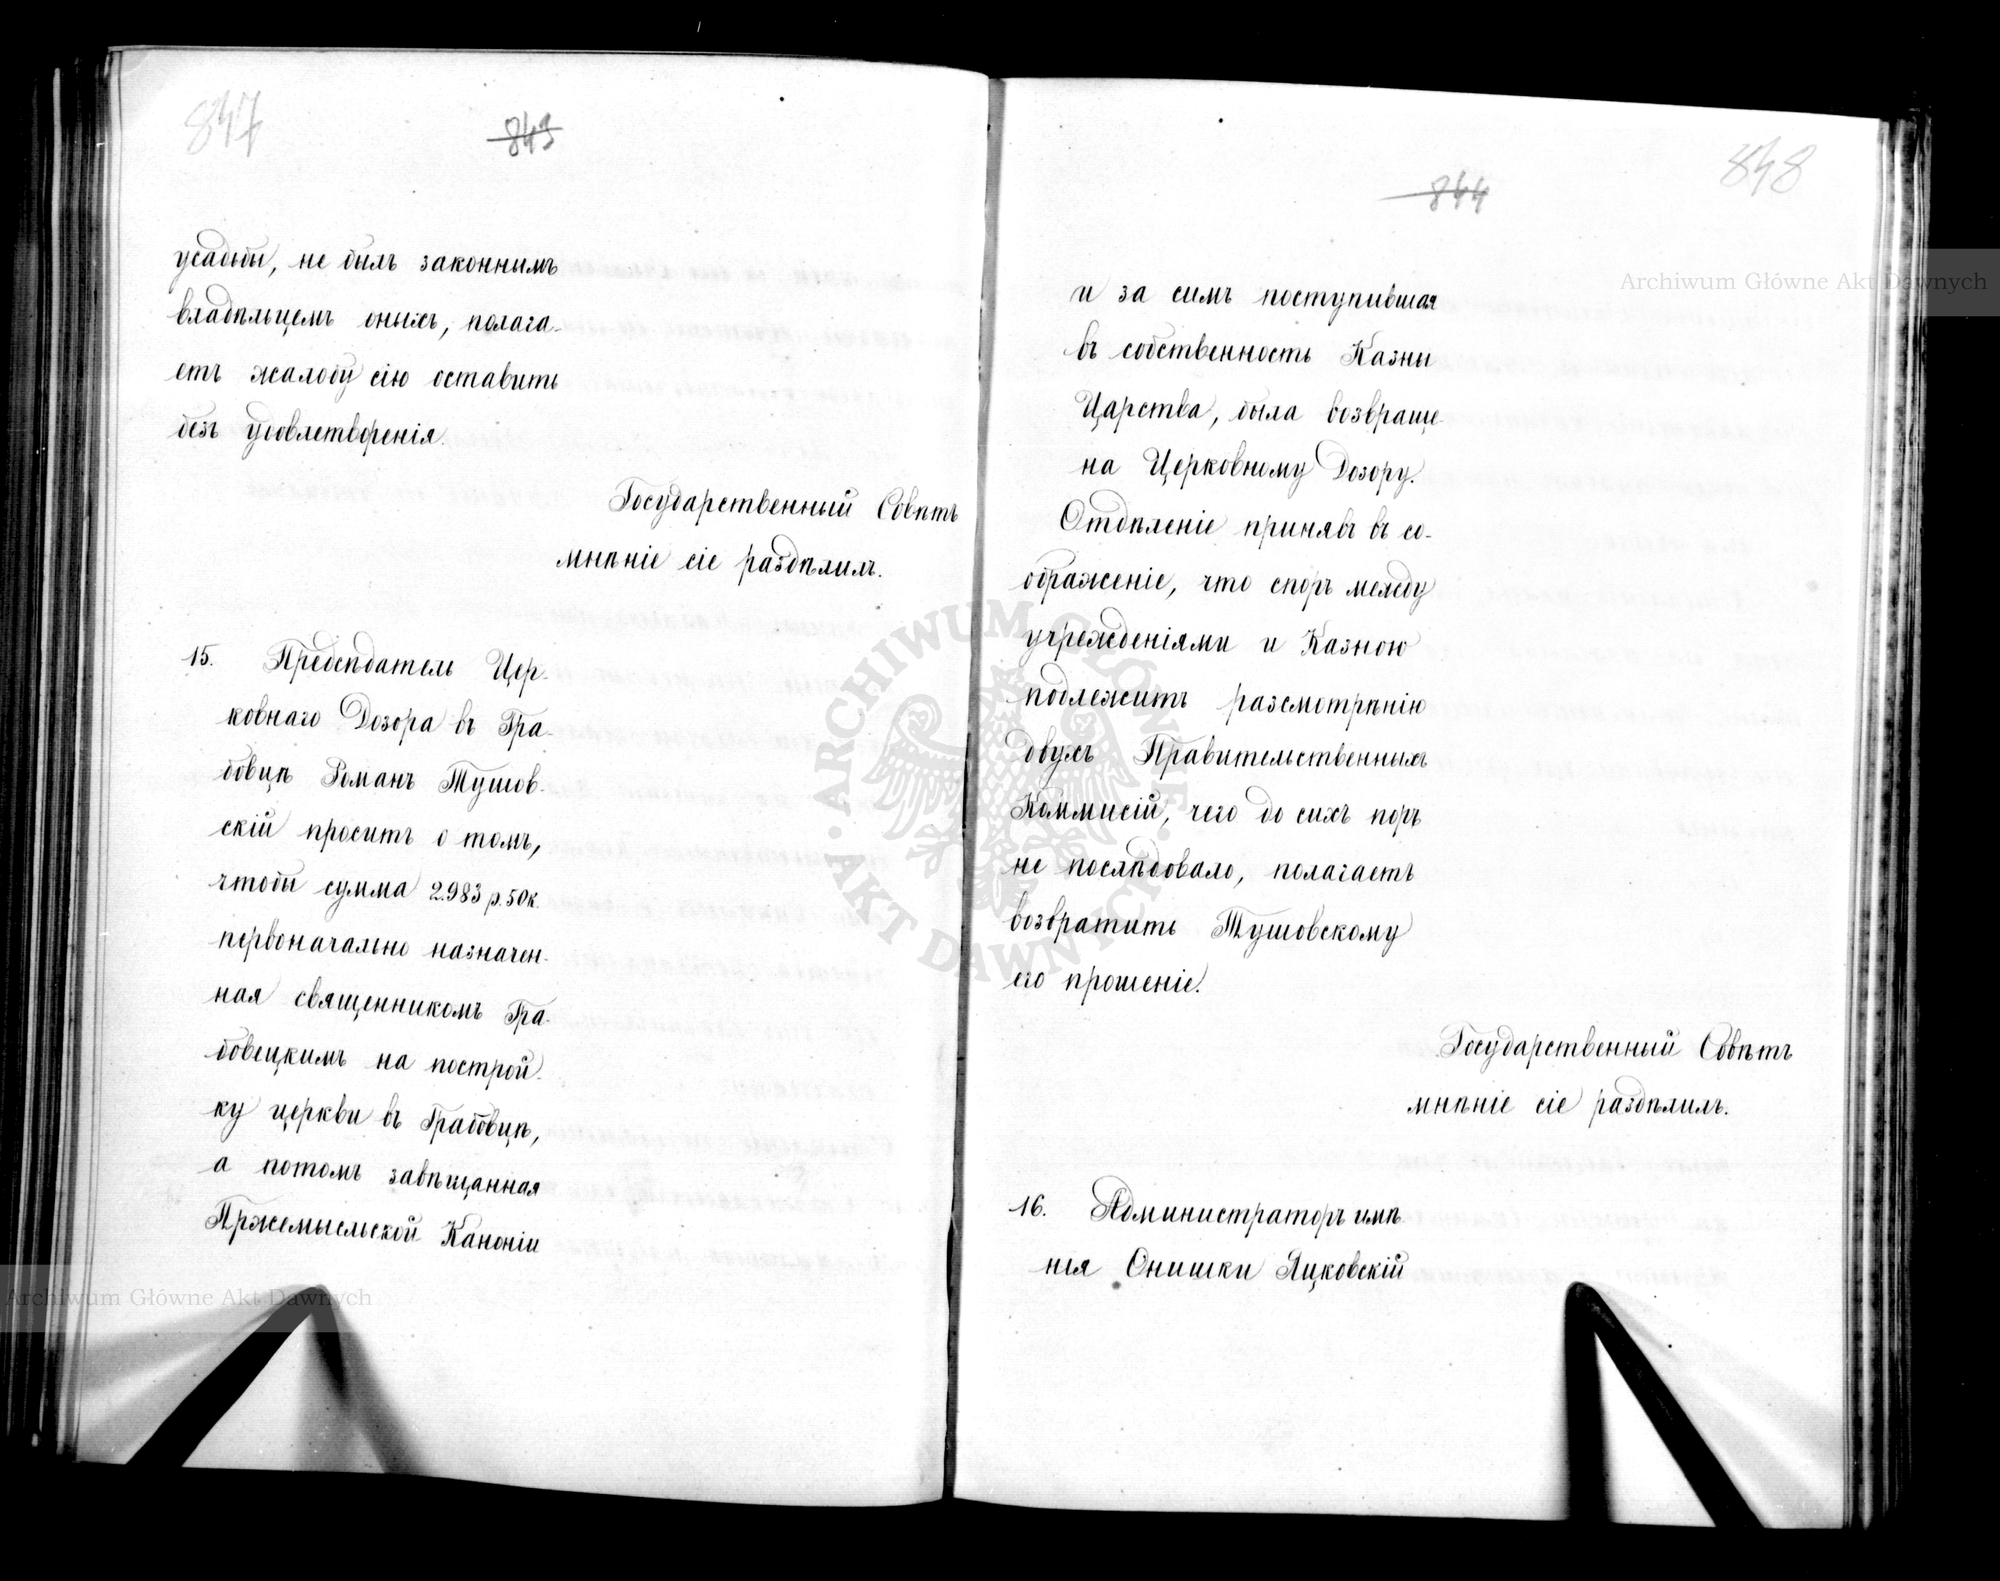 847
843
усадьбы, не былъ законнымъ
владѣльцемъ оныхъ, полага-
етъ жалобу сію оставить
безъ удовлетворенія.
Государственный Совѣтъ
мнѣніе сіе раздѣлилъ.
15. Предсѣдатель Цер-
ковнаго Дозора въ Гра-
бовцѣ Романъ Тушов-
скій проситъ о томъ,
чтобы сумма 2.983 р. 50 к.
первоначально назначен-
ная священникомъ Гра-
бовецкимъ на построй-
ку церкви въ Грабовцѣ,
а потомъ завѣщанная
Пржемысльской Каноніи
848
844
и за симъ поступившая
въ собственность Казны
Царства, была возвраще-
на Церковному Дозору.
Отдѣленіе принявъ въ со-
ображеніе, что споръ между
учрежденіями и Казною
подлежитъ разсмотрѣнію
двухъ Правительственныхъ
Коммисій, чего до сихъ поръ
не послѣдовало, полагаетъ
возвратить Тушовскому
его прошеніе.
Государственный Совѣтъ
мнѣніе сіе раздѣлилъ.
16. Администраторъ имѣ
нія Онишки Яцковскій
Archiwum Główne Akt Dawnych
Archiwum Główne Akt Dawnych
ARCHIWUM GŁÓWNE
AKT DAWNYCH